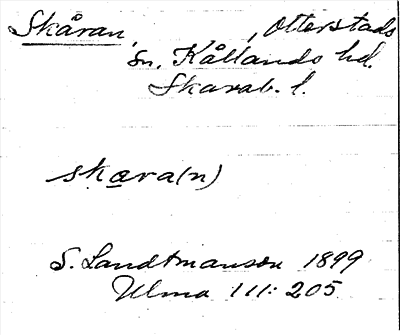 Skåran, , Otterstads
sn. Kållands hd.
Skarab. l.
skara(n)
S. Landtmanson 1899
Ulma 111: 205